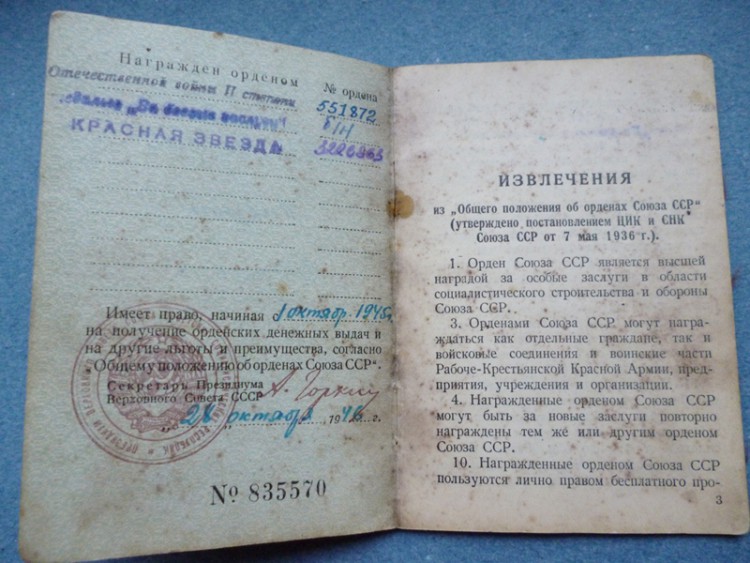 Награжден орденом
№ ордена
Отечественной войны II степени
551872
медалью „За боевые заслуги"
б/н
КРАСНАЯ ЗВЕЗДА
Имеет право, начиная 1 октябр. 1945г.
на получение орденских денежных выдач и
на другие льготы и преимущества, согласно
„Общему положению об орденах Союза ССР".
Секретарь Президиума
Верховного Совета СССР А. Горкин
„28" октября 1946 г.
№ 835570
ИЗВЛЕЧЕНИЯ
из „Общего положения об орденах Союза ССР"
(утверждено постановлением ЦИК и СНК
Союза ССР от 7 мая 1936 г.).
1. Орден Союза ССР является высшей
наградой за особые заслуги в области
социалистического строительства и обороны
Союза ССР.
3. Орденами Союза ССР могут награ-
ждаться как отдельные граждане, так и
войсковые соединения и воинские части
Рабоче-Крестьянской Красной Армии, пред-
приятия, учреждения и организации.
4. Награжденные орденом Союза ССР
могут быть за новые заслуги повторно
награждены тем же или другим орденом
Союза ССР.
10. Награжденные орденом Союза ССР
пользуются лично правом бесплатного про-
3